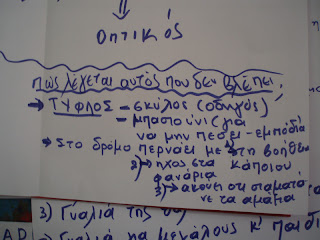 οπτικός
Πώς λέγεται αυτός που δεν βλέπει;
→ ΤΥΦΛΟΣ - σκύλος (οδηγός)
- μπαστούνι (για
να μην πέσει - εμπόδια)
• Στο δρόμο περνάει με 1) τη βοήθεια
κάποιου
2) ηχος στα
φανάρια
3) ακούει οτι σταματά
νε τα αμάξια
3) Γυαλιά της
Γυαλιά για μεγάλους κ' παιδι